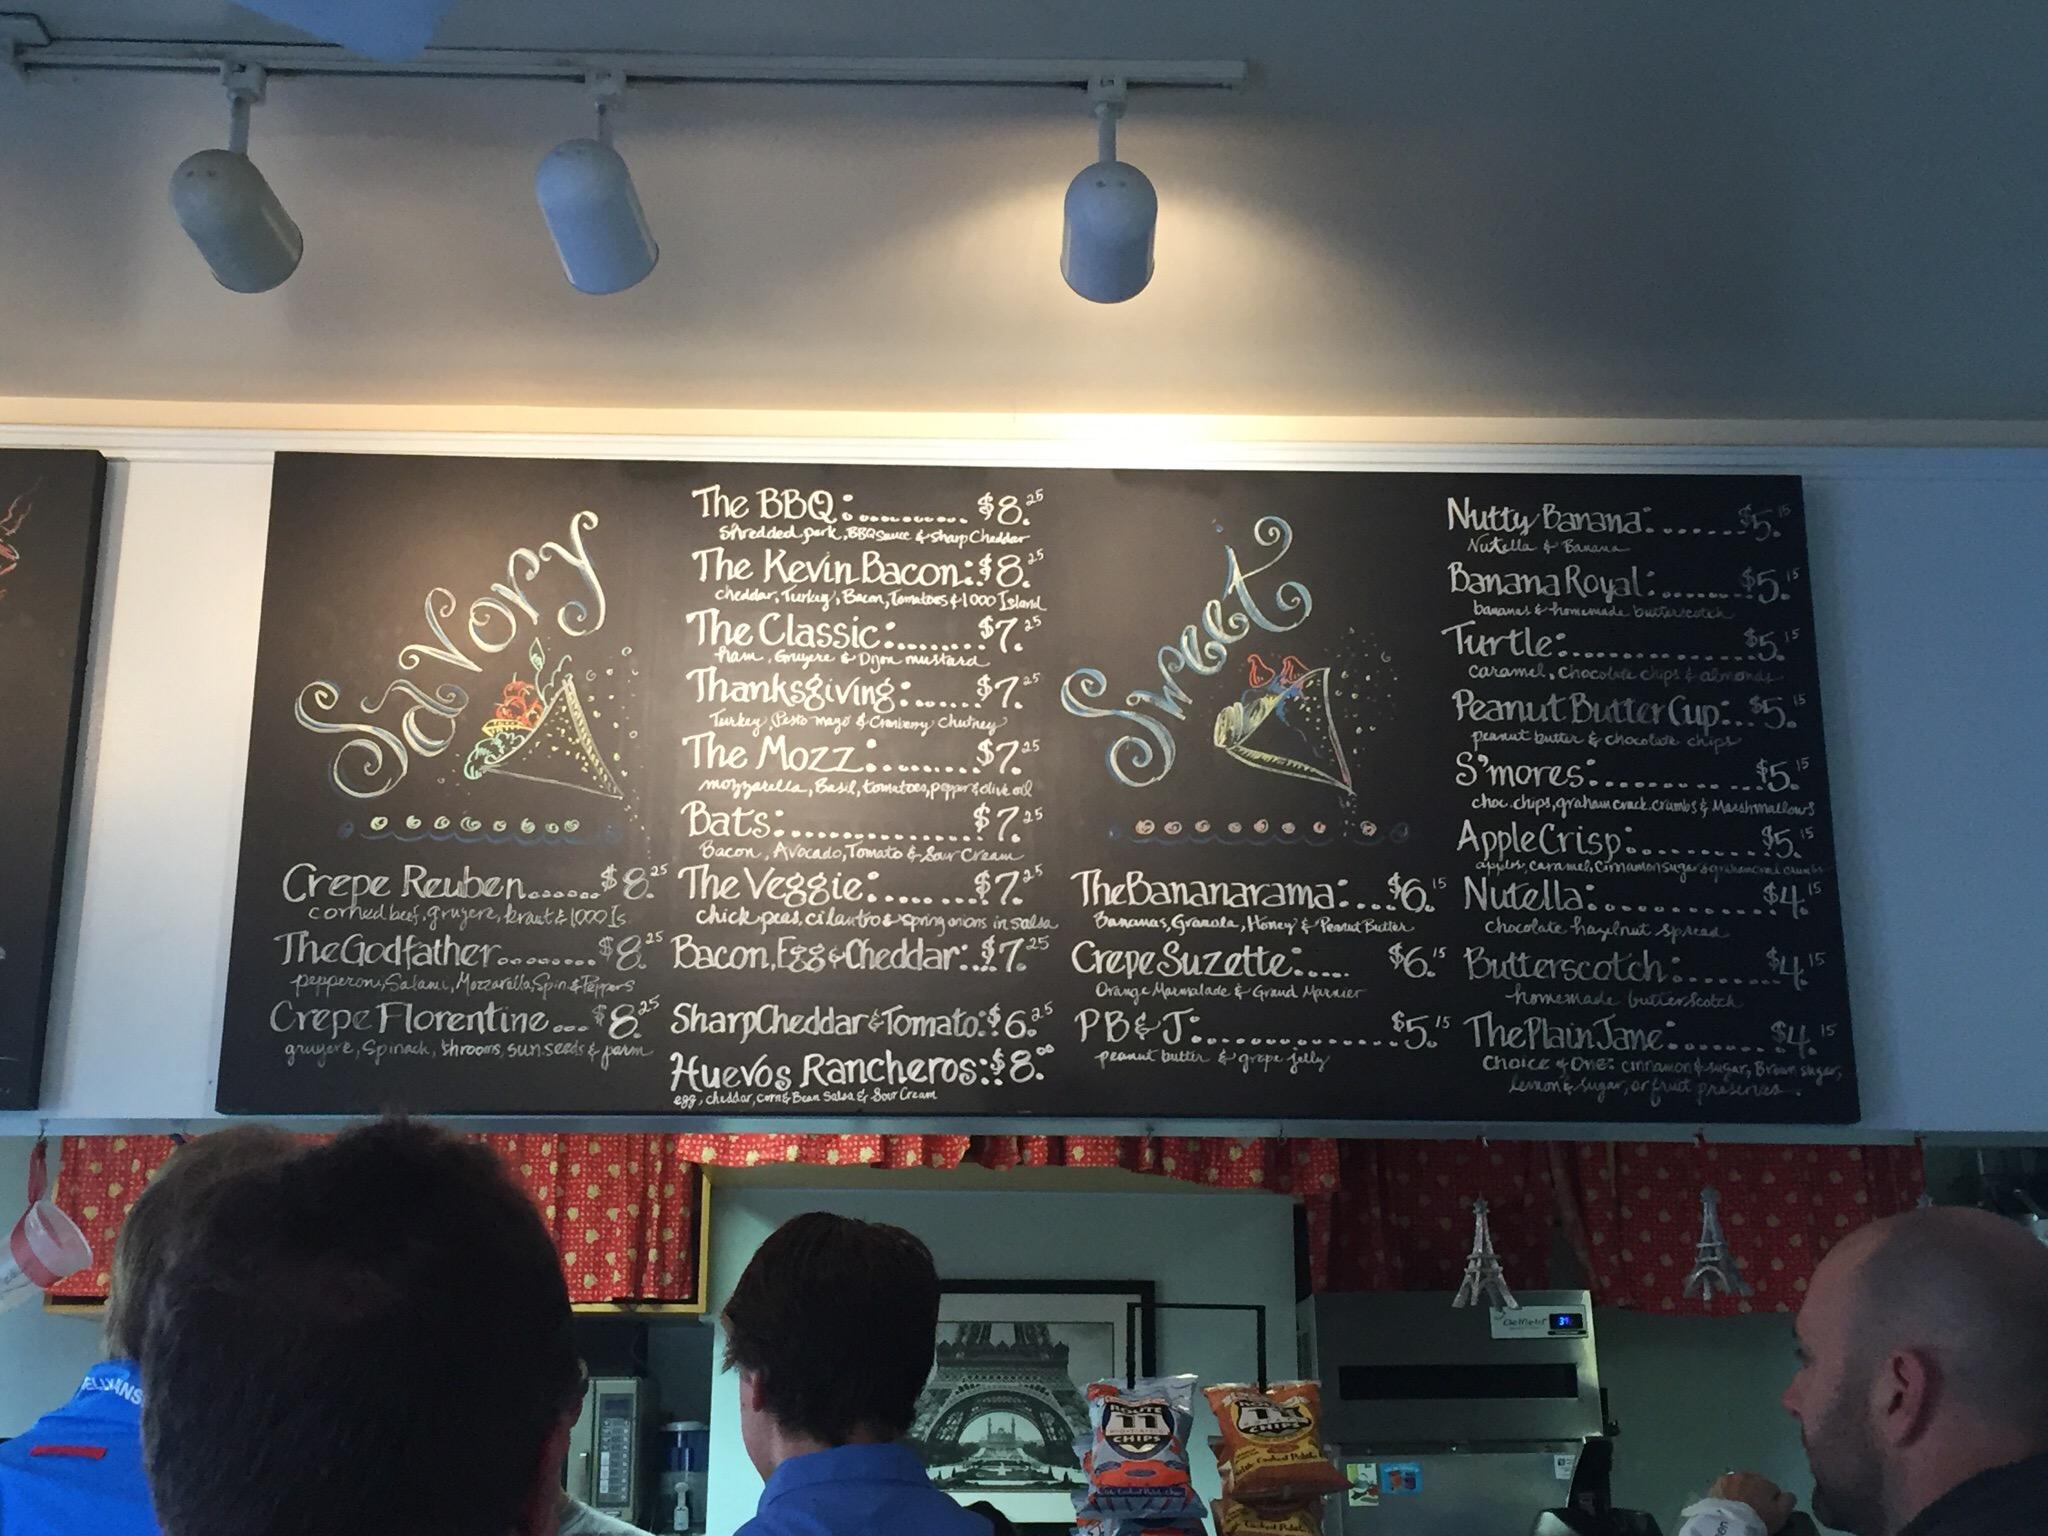 Savory
Crepe Reuben....... $8.25
corned beef, gruyere, kraut & 1000 Is.
The Godfather......... $8.25
pepperoni, Salami, Mozzarella, Spin. & Peppers
Crepe Florentine... $8.25
gruyere, Spinach, 'shrooms, sun.seeds & parm
The BBQ: .......... $8.25
Shredded pork, BBQ sauce & Sharp Cheddar
The Kevin Bacon: $8.25
cheddar, Turkey, Bacon, Tomatoes & 1000 Island
The Classic: ........ $7.25
ham, Gruyere & Dijon mustard
Thanksgiving: ...... $7.25
Turkey, Pesto mayo & Cranberry Chutney
The Mozz: ......... $7.25
mozzarella, Basil, tomatoes, pepper & olive oil
Bats: ................. $7.25
Bacon, Avocado, Tomato & Sour Cream
The Veggie: ........ $7.25
chick peas, cilantro & spring onions in salsa
Bacon, Egg & Cheddar: .. $7.25
Sharp Cheddar & Tomato: $6.25
Huevos Rancheros: $8.00
egg, cheddar, corn & Bean Salsa & Sour Cream
Sweet
The Bananarama: .... $6.15
Bananas, Granola, Honey & Peanut Butter
Crepe Suzette: ..... $6.15
Orange Marmalade & Grand Marnier
PB & J: .............. $5.15
peanut butter & grape jelly
Nutty Banana: ...... $5.15
Nutella & Banana
Banana Royal: ....... $5.15
bananas & homemade butterscotch
Turtle: ............... $5.15
caramel, chocolate chips & almonds
Peanut Butter Cup: .. $5.15
peanut butter & chocolate chips
S'mores: ............. $5.15
choc. chips, graham crack. crumbs & Marshmallows
Apple Crisp: .......... $5.15
apples, caramel, Cinnamon sugar & graham crumbs
Nutella: ............. $4.15
chocolate hazelnut spread
Butterscotch: ....... $4.15
homemade butterscotch
The Plain Jane: ....... $4.15
Choice of One: cinnamon & sugar, Brown sugar,
lemon & sugar, or fruit preserves.
Delfield
ROUTE
11
POTATO
CHIPS
ROUTE
11
CHIPS